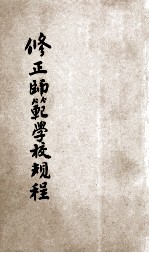 修正師範學校規程